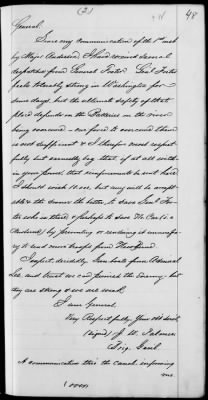 (2)
48
General.
Since my communication of the 1st inst
by Major Anderson, I have received several
dispatches from General Foster. Genl Foster
feels tolerably strong in Washington for
some days, but the ultimate safety of that
place depends on the Batteries on the river
being removed - our force to succeed there
is not sufficient & I therefore most respect
fully but earnestly beg that if at all with
in your power, that reinforcements be sent here
I should wish 10.000, but any will be accept
able the sooner the better, to save Genl Fos-
ter who is there & perhaps to save No. Carolina
by preventing or rendering it unnecessary
to send more troops from New Berne
I expect, decidedly, Gun boats from Admiral
Lee, and trust we can punish the Enemy - but
they are strong & we are weak.
I am General,
Very Respectfully Your Obt Servt
(Signed) J. N. Palmer
Brig. Genl.
A communication thro the canal informing
me
(over)